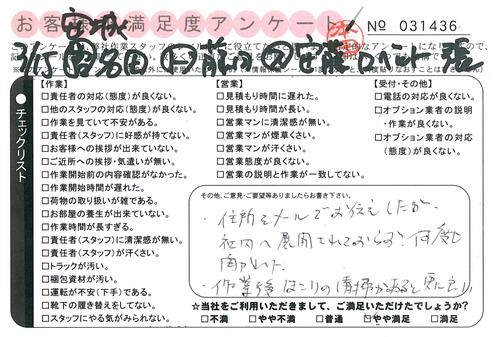 お客様満足度アンケート
No 031436
安城
【作業】
□責任者の対応(態度)が良くない。
□他のスタッフの対応(態度)が良くない。
□作業を見ていて不安がある。
□責任者(スタッフ)に好感が持てない。
□お客様への挨拶が出来ていない。
□ご近所への挨拶・気遣いが無い。
□作業開始前の内容確認がなかった。
□作業開始時間が遅れた。
□荷物の取り扱いが雑である。
□お部屋の養生が出来ていない。
□作業時間が長すぎる。
□責任者(スタッフ)に清潔感が無い。
□責任者(スタッフ)が汗くさい。
□トラックが汚い。
□梱包資材が汚い。
□運転が不安(下手)である。
□靴下の履き替えをしてない。
□スタッフにやる気がみられない。
【営業】
□見積もり時間に遅れた。
□見積もり時間が長い。
□営業マンに清潔感が無い。
□営業マンが煙草くさい。
□営業マンが汗くさい。
□営業態度が良くない。
□営業の説明と作業が一致してない。
【受付・その他】
□電話の対応が良くない。
□オプション業者の説明
・作業が良くない。
□オプション業者の対応
(態度)が良くない。
チェックリスト
その他、ご意見・ご要望等ありましたらお書き下さい。
・住所をメールでお伝えしたが、
社内へ展開されておらず?何度も
聞かれた。
・作業後ほこりの清掃があると更に良い
☆当社をご利用いただきまして、ご満足いただけたでしょうか?
□不満 □やや不満 □普通 □やや満足 □満足